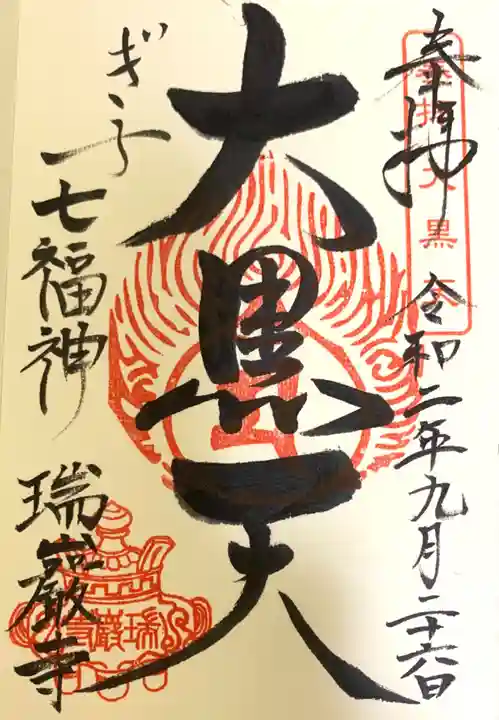 奉拝 令和二年九月二十六日
大黒天
ぎふ七福神 瑞巌寺
瑞巌寺